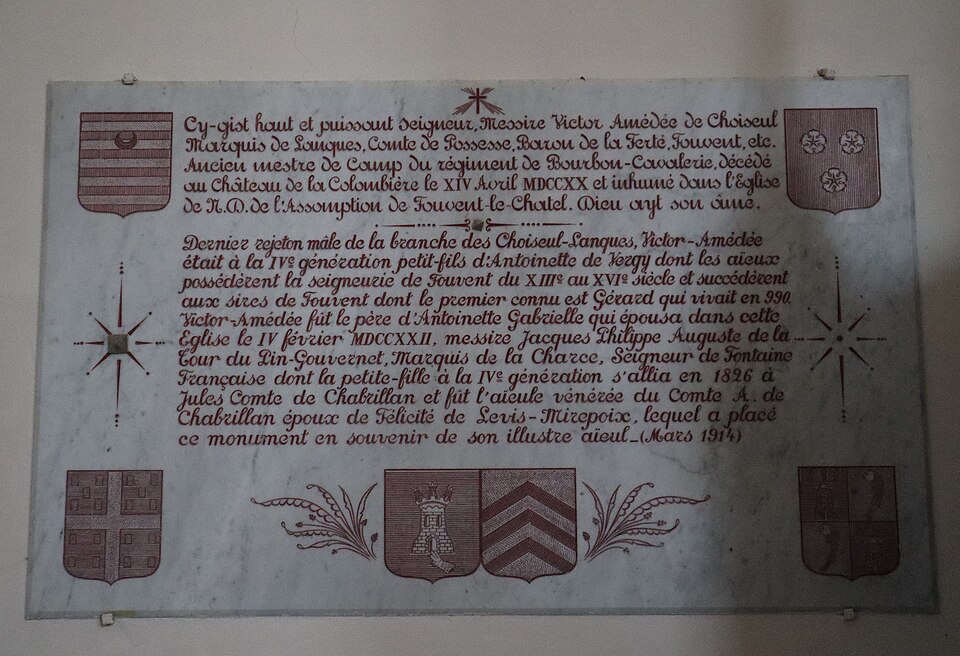 Cy-gist haut et puissant seigneur, Messire Victor Amédée de Choiseul
Marquis de Lanques, Comte de Possesse, Baron de la Ferté, Fouvent, etc.
Ancien mestre de Camp du régiment de Bourbon-Cavalerie, décédé
au Château de la Colombière le XIV Avril MDCCXX et inhumé dans l'Eglise
de N.D. de l'Assomption de Fouvent-le-Chatel. Dieu ayt son âme.
Dernier rejeton mâle de la branche des Choiseul-Lanques, Victor-Amédée
était à la IVe génération petit-fils d'Antoinette de Vergy dont les aïeux
possédèrent la seigneurie de Fouvent du XIIIe au XVIe siècle et succédèrent
aux sires de Fouvent dont le premier connu est Gérard qui vivait en 990.
Victor-Amédée fût le père d'Antoinette Gabrielle qui épousa dans cette
Eglise le IV février MDCCXXII, messire Jacques Philippe Auguste de la
Tour du Pin-Gouvernet, Marquis de la Charce, Seigneur de Fontaine
Française dont la petite-fille à la IVe génération s'allia en 1826 à
Jules Comte de Chabrillan et fût l'aïeule vénérée du Comte A. de
Chabrillan époux de Félicité de Levis-Mirepoix, lequel a placé
ce monument en souvenir de son illustre aïeul_(Mars 1914)